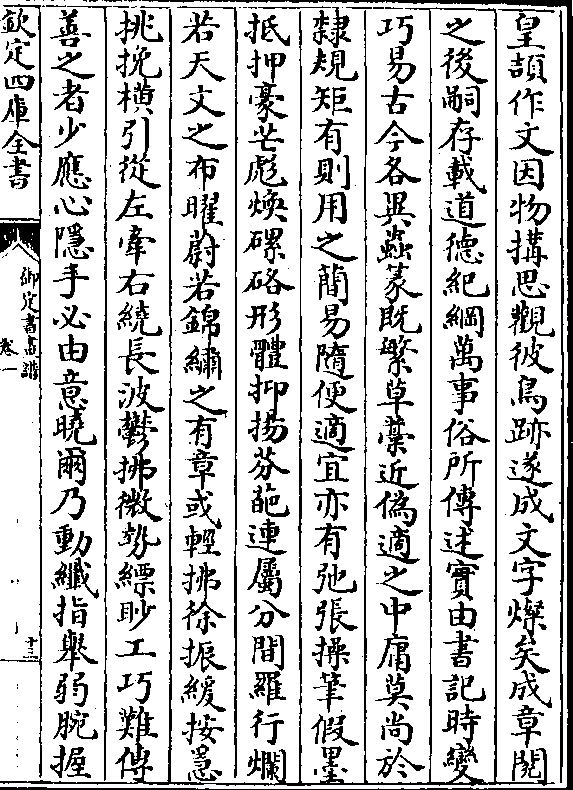 皇頡作文因物搆思觀彼鳥跡遂成文字燦矣成章閱
之後嗣存載道德紀綱萬事俗所傳述實由書記時變
巧易古今各異蟲篆既繁草藁近偽適之中庸莫尚於
隸規矩有則用之簡易隨便適宜亦有弛張操筆假墨
抵押豪芒彪煥磥硌形體抑揚芬葩連屬分間羅行爛
若天文之布曜蔚若錦繡之有章或輕拂徐振緩按急
挑挽横引從左牽右繞長波鬱拂微勢縹眇工巧難傳
善之者少應心隱手必由意曉爾乃動纖指舉弱腕握
欽定四庫全書
御定書畫譜
卷一
十三